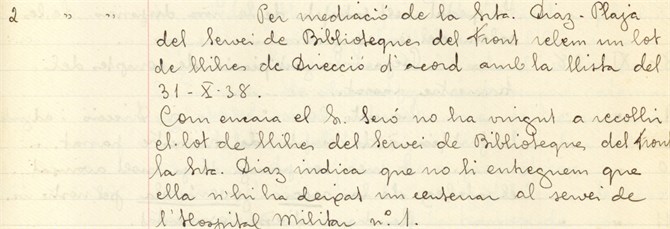 2 " " Per mediació de la Srta. Diaz-Plaja
del Servei de Biblioteques del Front rebem un lot
de llibres de Direcció d'acord amb la llista del
31-X-38.
Com encara el Sr. Seró no ha vingut a recollir
el lot de llibres del Servei de Biblioteques del Front
la Srta. Diaz indica que no li entreguem que
ella n'hi ha deixat un centenar al servei de
l'Hospital Militar nº 1.